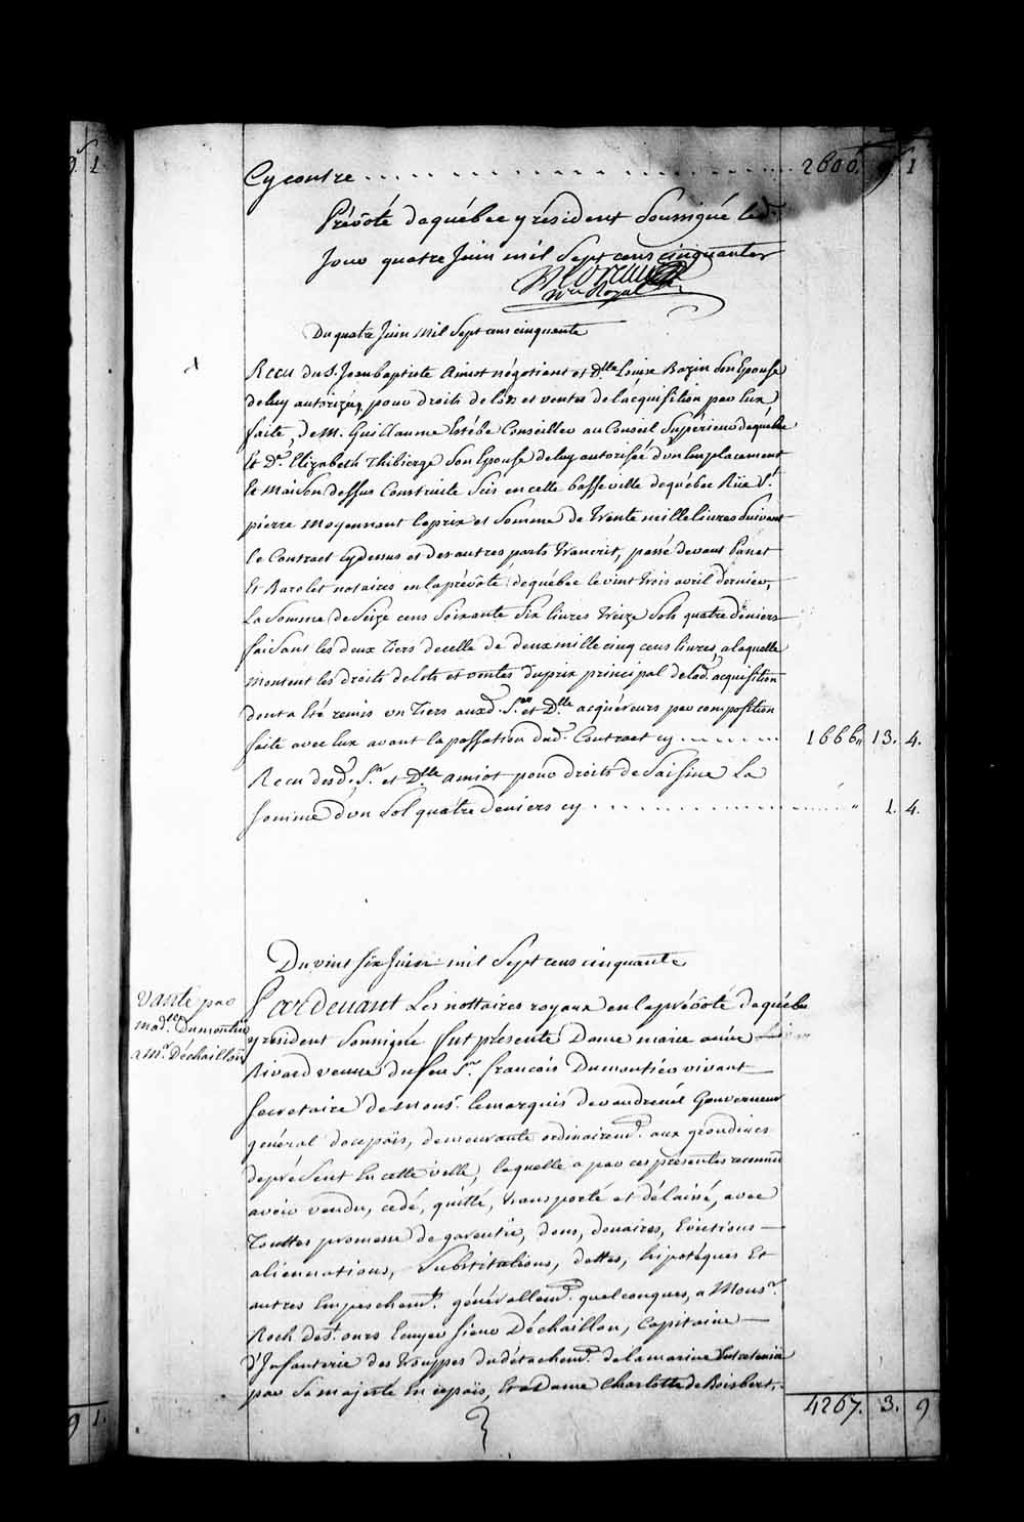 9. 1.
Cy contre . . . . . . . . . . . . . . . . 2600. 9. 1
Prévôté dequébec y résident Soussigné led.
Jour quatre Juin mil Sept cens cinquante
Moreau
Nre Royal
Du quatre Juin Mil Sept cens cinquante
Receu du S. Jean baptiste Amiot négotiant et Dlle Louise Bazin Son Epouse
deluy autorizée, pour droits de lods et ventes de lácquisition par Eux
faite, de M. Guillaume Estébe Conseiller au Conseil Supérieur dequébec
Et De. Elizabeth Thibierge Son Epouse de luy autorisée d'un Emplacement
Et Maison dessus Construite Scis en cette basse ville dequébec Rüe St.
pierre Moyennant leprix et Somme de Trente mille livres Suivant
le Contract cydessus et des autres parts Transcrit, passé devant Panet
Et Barolet notaires en la prévôté dequébec le vint trois avril dernier,
La Somme de Seize cens Soixante Six livres Treize Sols quatre deniers
faisant les deux Tiers decelle de deux mille cinq cens livres, a laquelle
Montent les droits delots et ventes duprix principal de lad. acquisition
dont a Eté remis un Tiers auxd. Sr. et Dlle acquéreurs par composition
faite avec Eux avant la passation dud. Contract cy . . . . . . 1666„ 13. 4.
Receu desd. Sr. et Dlle Amiot pour droits de Saisine La
Somme d'un Sol quatre deniers cy . . . . . . . . . . „ 1. 4.
Du vint Six Juin mil Sept cens cinquante
Vante par
Made. Dumontier
a Mr. Déchaillon
Pardevant Les nottaires royaux en la prévôté dequébec
y résident Soussigné fut présente Dame marie anne
Rivard veuve du feu Sr. françois Dumontier vivant
Secretaire de Monsr. lemarquis devaudreüil Gouverneur
général decepaïs, demeurante ordinairemt. aux grondines
deprésent En cette ville, laquelle a par ces présentes reconnû
avoir vendu, cedé, quitté, transporté et délaissé, avec
Touttes promesse de garentie, dons, doüaires, Evictions
alienations, Substitutions, dettes, hipotéques Et
autres Empeschemt. générallemt. quelconques, a Monsr.
Roch de St. ours Ecuyer Sieur Déchaillon, Capitaine
d'Infanterie des Trouppes du détachemt. de la marine Entretenüe
par Sa majesté En cepaïs, Et a Dame Charlotte de Boishert,
4267. 3. 9
9 1.